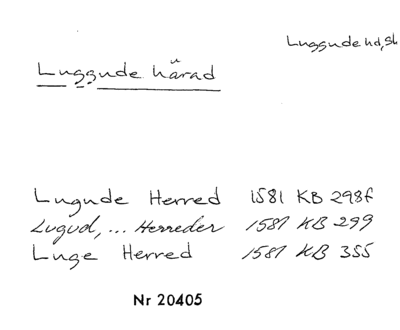 Luggude hd, Sk
Luggude härad
Lugude Herred 1581 KB 298f
Lugud, ... Herreder 1581 KB 299
Luge Herred 1581 KB 355
Nr 20405